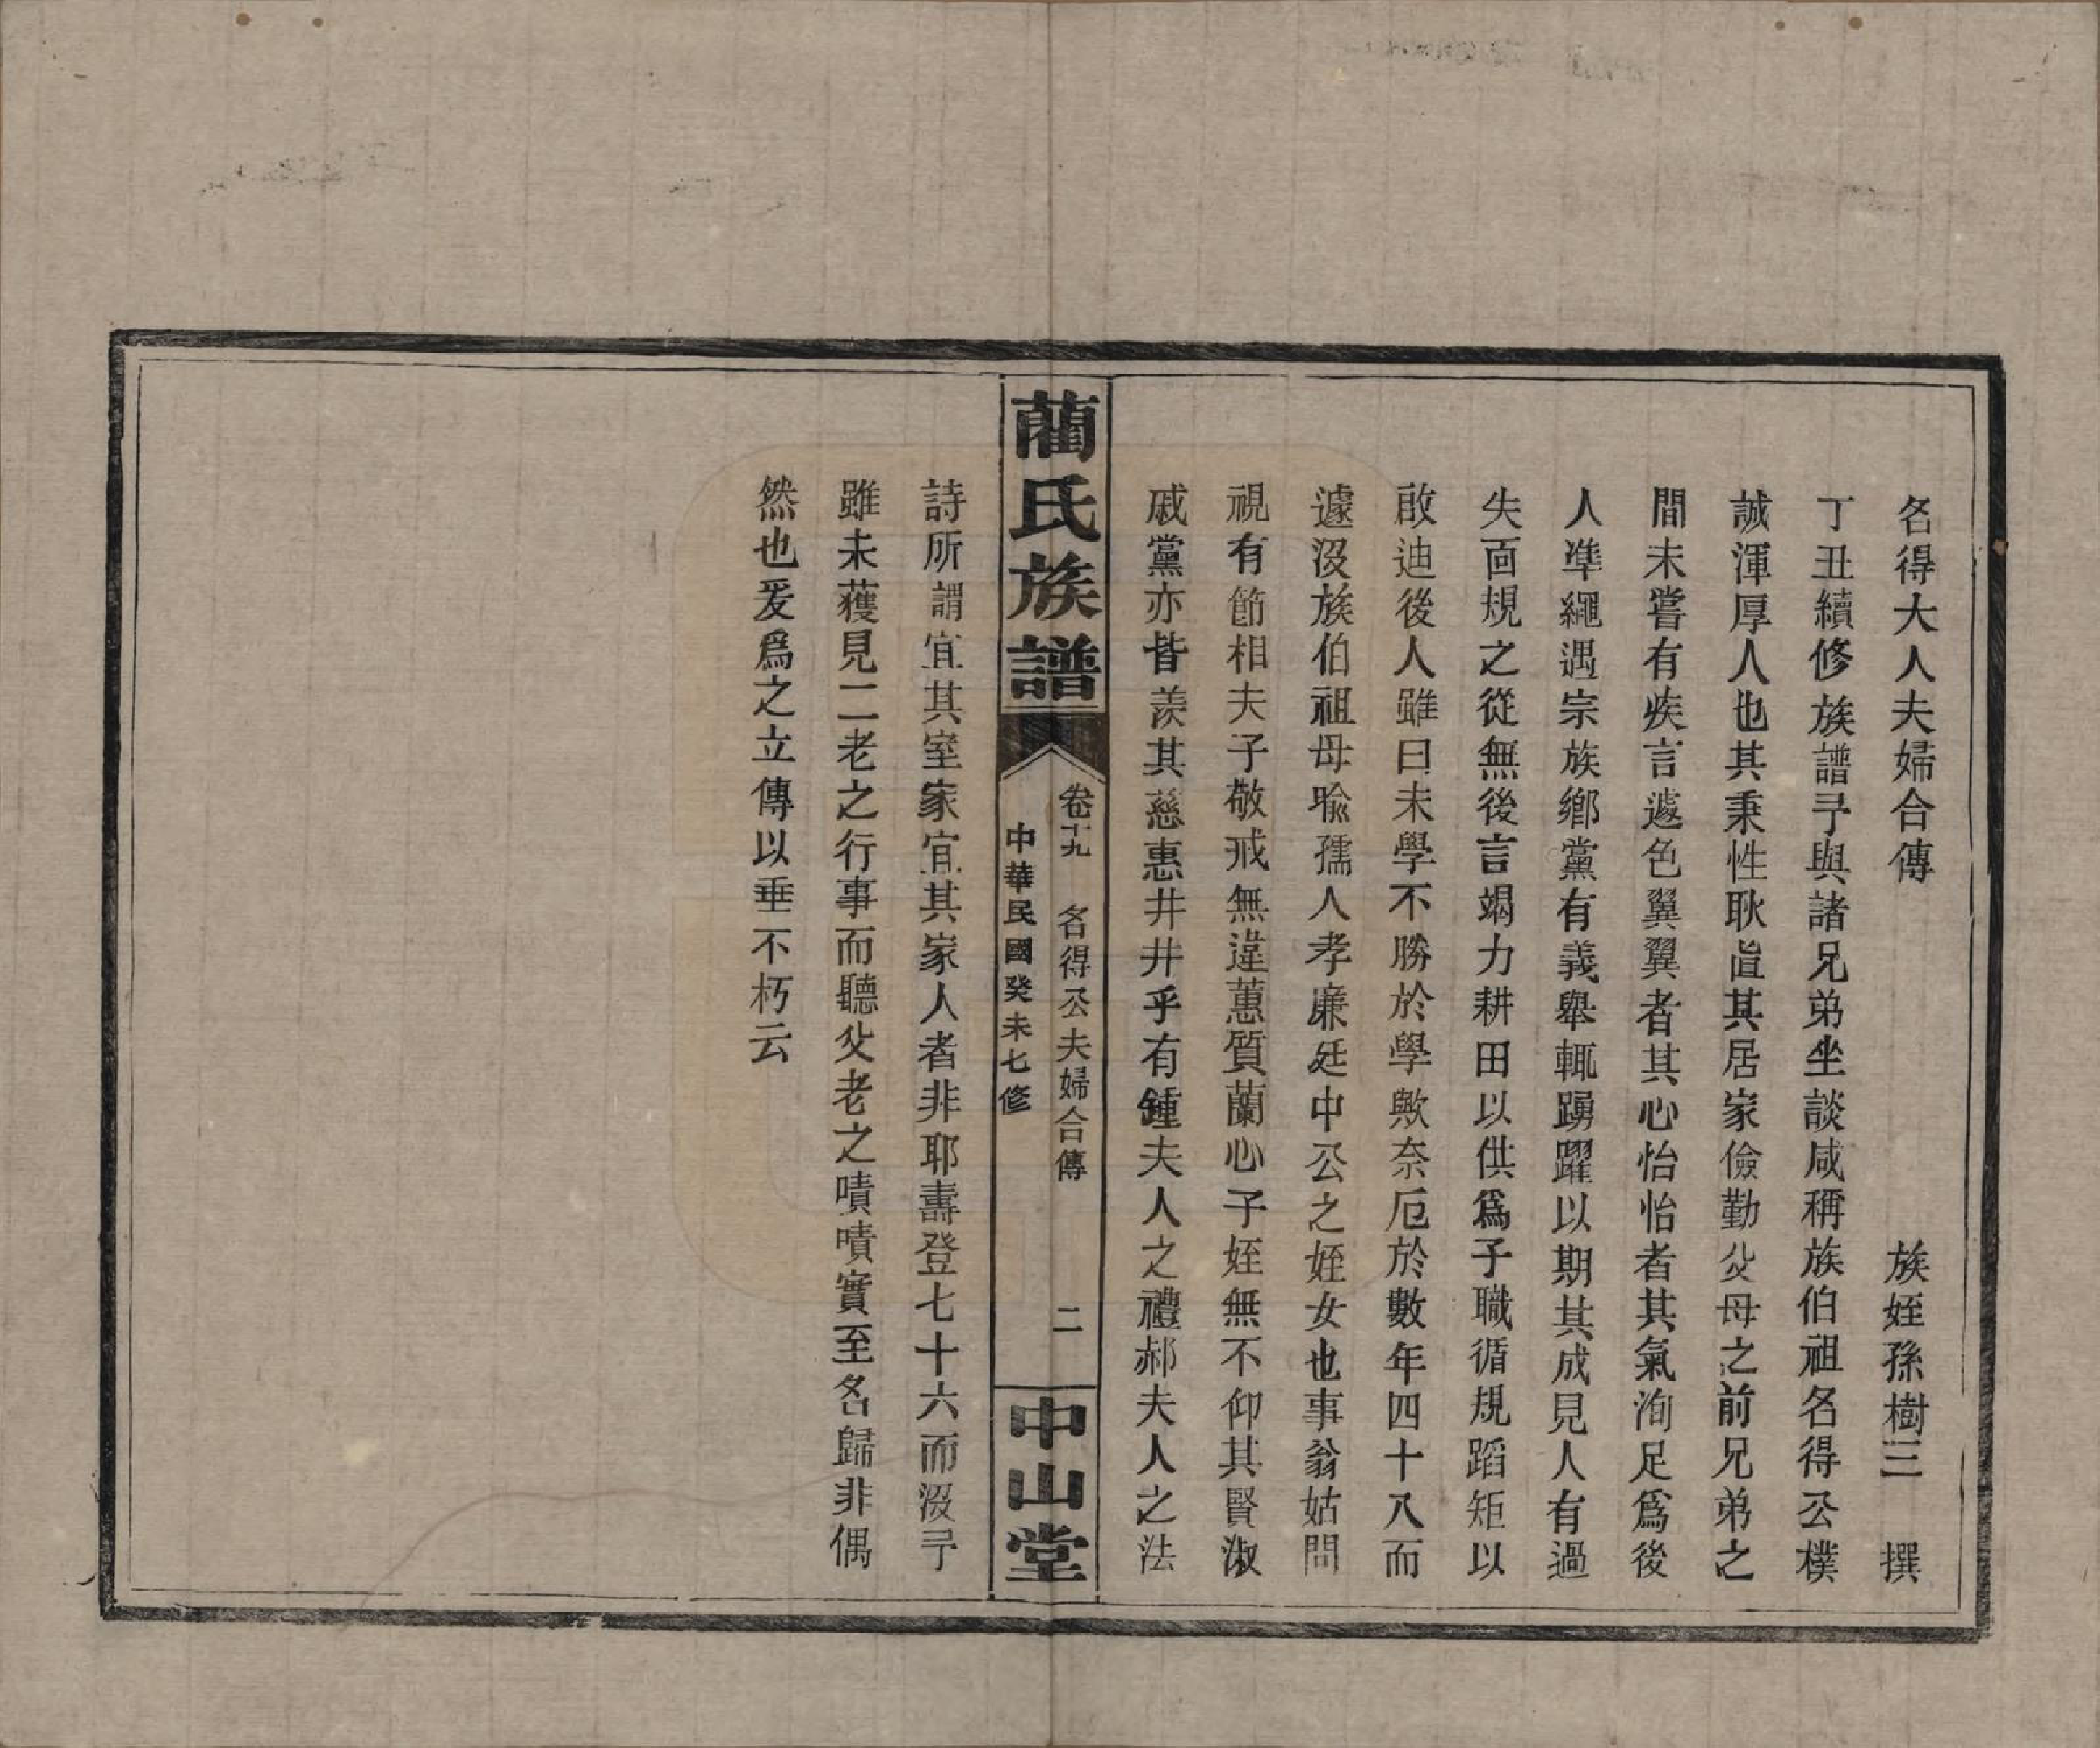 名得大人夫婦合傳　族姪孫樹三　撰
丁丑續修族譜予與諸兄弟坐談咸稱族伯祖名得公樸
誠渾厚人也其秉性耿眞其居家儉勤父母之前兄弟之
間未嘗有疾言遽色翼翼者其心怡怡者其氣洵足爲後
人準繩遇宗族鄉黨有義舉輒踴躍以期其成見人有過
失面規之從無後言竭力耕田以供爲子職循規蹈矩以
啟迪後人雖曰未學不勝於學歟奈厄於數年四十八而
遽沒族伯祖母喩孺人孝廉廷中公之姪女也事翁姑問
視有節相夫子敬戒無違蕙質蘭心子姪無不仰其賢淑
戚黨亦皆羨其慈惠井井乎有鍾夫人之禮郝夫人之法
藺氏族譜
卷十九　名得公夫婦合傳　二
中華民國癸未七修
中山堂
詩所謂宜其室家宜其家人者非耶壽登七十六而沒予
雖未獲見二老之行事而聽父老之嘖嘖實至名歸非偶
然也爰爲之立傳以垂不朽云